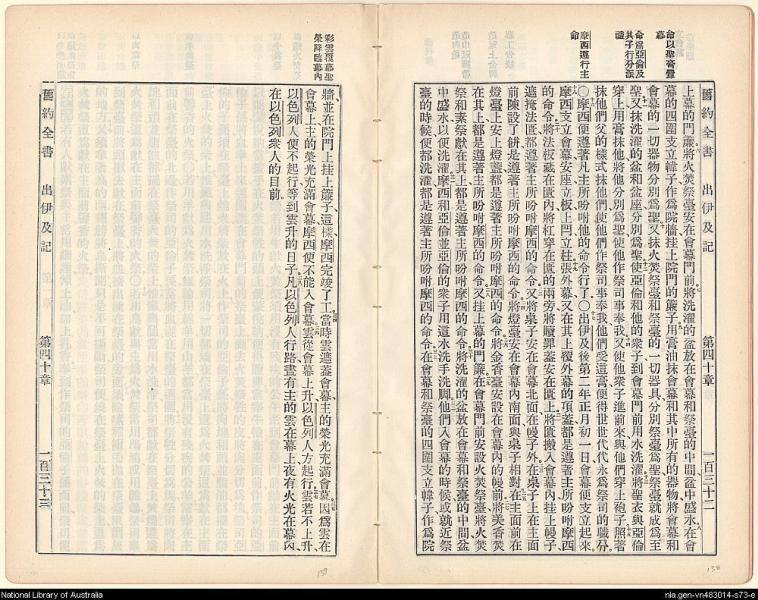 命以聖膏膏
幕
命爲亞倫及
其子行分派
禮
摩西遵行主
命
上幕的門簾將火焚祭臺安在會幕門前將洗濯的盆放在會幕和祭臺的中間盆中盛水在會
幕的四圍支立幃子作爲院牆挂上院門的簾子用膏油抹會幕和其中所有的器物將會幕和
會幕的一切器物分別爲聖又抹火焚祭臺和祭臺的一切器具分別祭臺爲聖祭臺就成爲至
聖又抹洗濯的盆和盆座分別爲聖使亞倫和他的衆子到會幕門前用水洗濯將聖衣與亞倫
穿上用膏抹他將他分別爲聖使他作祭司事奉我又使他衆子進前來與他們穿上袍子照著
抹他們父的樣式抹他們使他們作祭司事奉我他們受這膏便得世世代代永爲祭司的職分
〇摩西便遵著凡主所吩咐他的命令行了〇出伊及後第二年正月初一日會幕便支立起來
摩西支立會幕安座立板上閂立柱張外幕又在其上覆外幕的頂蓋都是遵著主所吩咐摩西
的命令將法板藏在匱內將杠穿在匱的兩旁將贖罪蓋安在匱上將匱搬入會幕內挂上幔子
遮掩法匱都遵著主所吩咐摩西的命令又將桌子安在會幕北面在幔子外在桌子上在主面
前陳設了餠是遵著主所吩咐摩西的命令將燈臺安在會幕內南面與桌子相對在主面前在
燈臺上安上燈盞都是遵著主所吩咐摩西的命令將金香臺安設在會幕內的幔前將美香焚
在其上都是遵著主所吩咐摩西的命令又挂上幕的門簾在會幕門前安設火焚祭臺將火焚
祭和素祭獻在其上都是遵著主所吩咐摩西的命令將洗濯的盆放在會幕和祭臺的中間盆
中盛水以便洗濯摩西和亞倫並亞倫的衆子用這水洗手洗脚他們入會幕的時候或就近祭
臺的時候便都洗濯都是遵著主所吩咐摩西的命令在會幕和祭臺的四圍支立幃子作爲院
舊約全書 出伊及記 第四十章 一百三十二
彩雲覆幕聖
榮降臨幕內
牆並在院門上挂上簾子這樣摩西完竣了工當時雲遮蓋會幕主的榮光充滿會幕因爲雲在
會幕上主的榮光充滿會幕摩西便不能入會幕雲從會幕上升以色列人方起行雲若不上升
以色列人便不起行等到雲升的日子凡以色列人行路晝有主的雲在幕上夜有火光在幕內
在以色列衆人的目前
舊約全書 出伊及記 第四十章 一百三十三
132
133
National Library of Australia
nla.gen-vn483014-s73-e